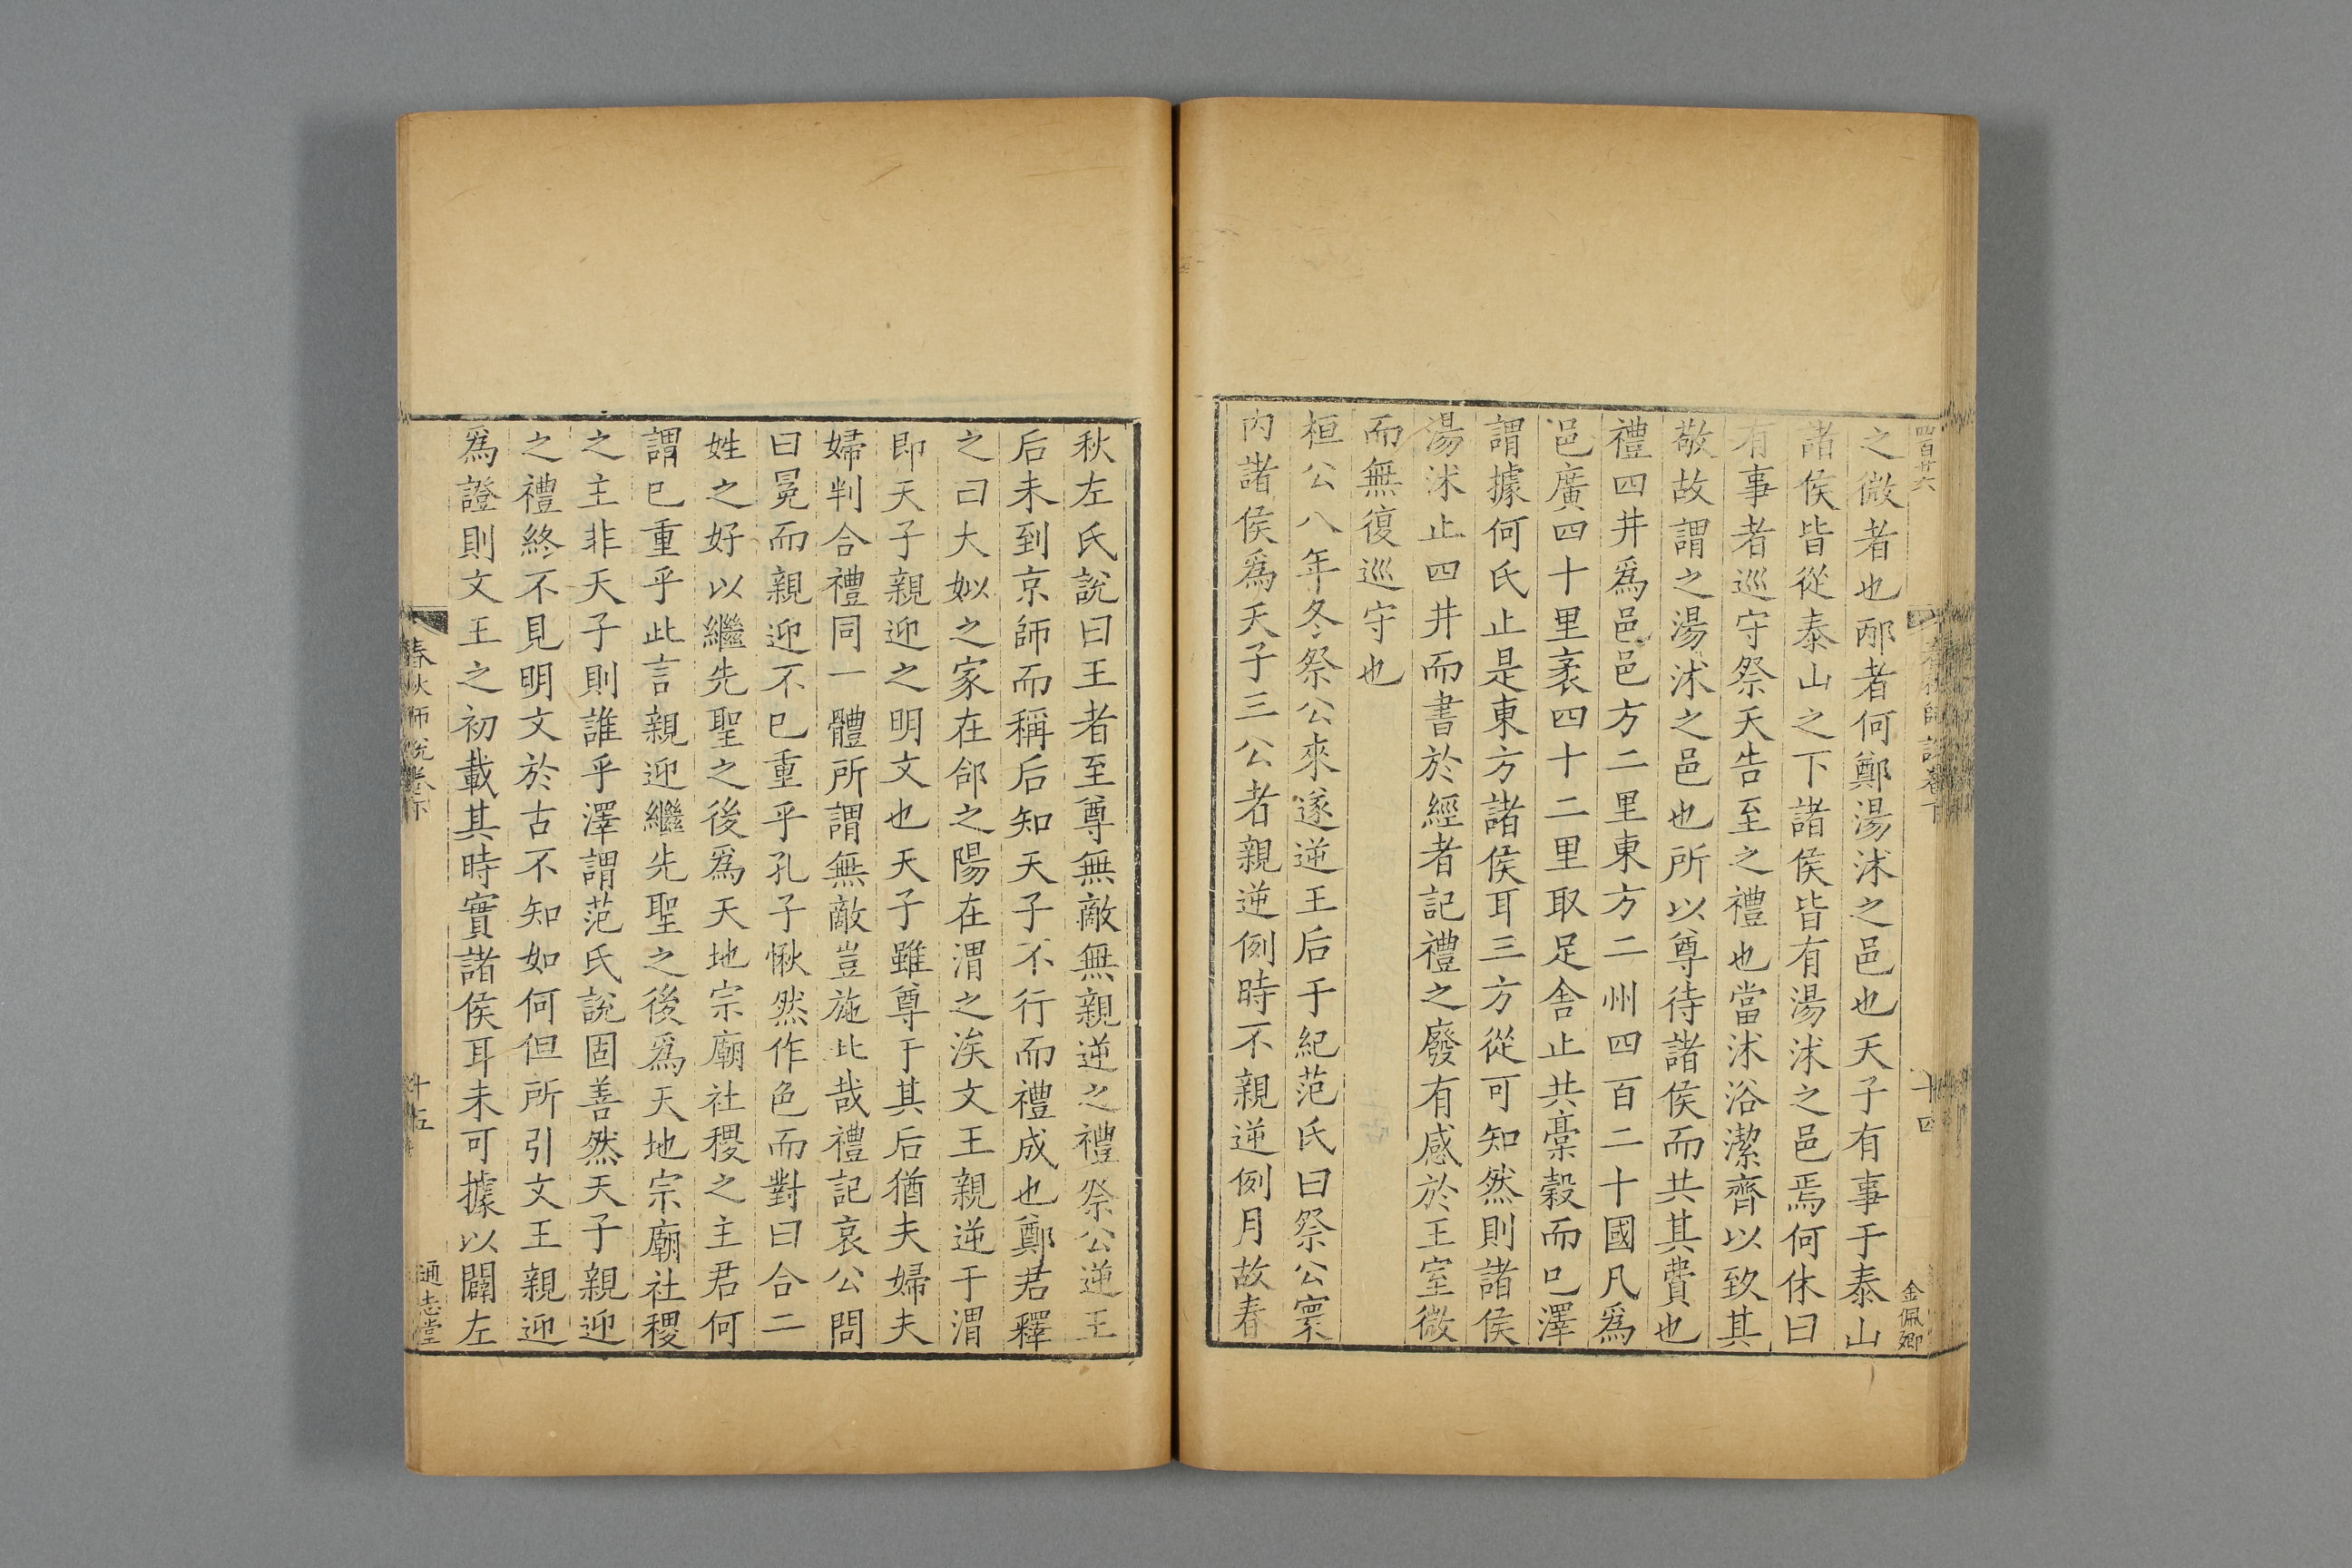 四百廿六
春秋師說卷下
十四
金佩卿
之微者也邴者何鄭湯沭之邑也天子有事于泰山
諸侯皆從泰山之下諸侯皆有湯沭之邑焉何休曰
有事者巡守祭天告至之禮也當沭浴潔齊以致其
敬故謂之湯沭之邑也所以尊待諸侯而共其費也
禮四井爲邑邑方二里東方二州四百二十國凡爲
邑廣四十里袤四十二里取足舍止共稾穀而已澤
謂據何氏止是東方諸侯耳三方從可知然則諸侯
湯沭止四井而書於經者記禮之廢有感於王室微
而無復巡守也
桓公八年冬祭公來遂逆王后于紀范氏曰祭公寰
內諸侯爲天子三公者親逆例時不親逆例月故春
秋左氏說曰王者至尊無敵無親逆之禮祭公逆王
后未到京師而稱后知天子不行而禮成也鄭君釋
之曰大姒之家在郃之陽在渭之涘文王親逆于渭
即天子親迎之明文也天子雖尊于其后猶夫婦夫
婦判合禮同一體所謂無敵豈施此哉禮記哀公問
曰冕而親迎不已重乎孔子愀然作色而對曰合二
姓之好以繼先聖之後爲天地宗廟社稷之主君何
謂已重乎此言親迎繼先聖之後爲天地宗廟社稷
之主非天子則誰乎澤謂范氏說固善然天子親迎
之禮終不見明文於古不知如何但所引文王親迎
爲證則文王之初載其時實諸侯耳未可據以闢左
春秋師說卷下
十五
通志堂